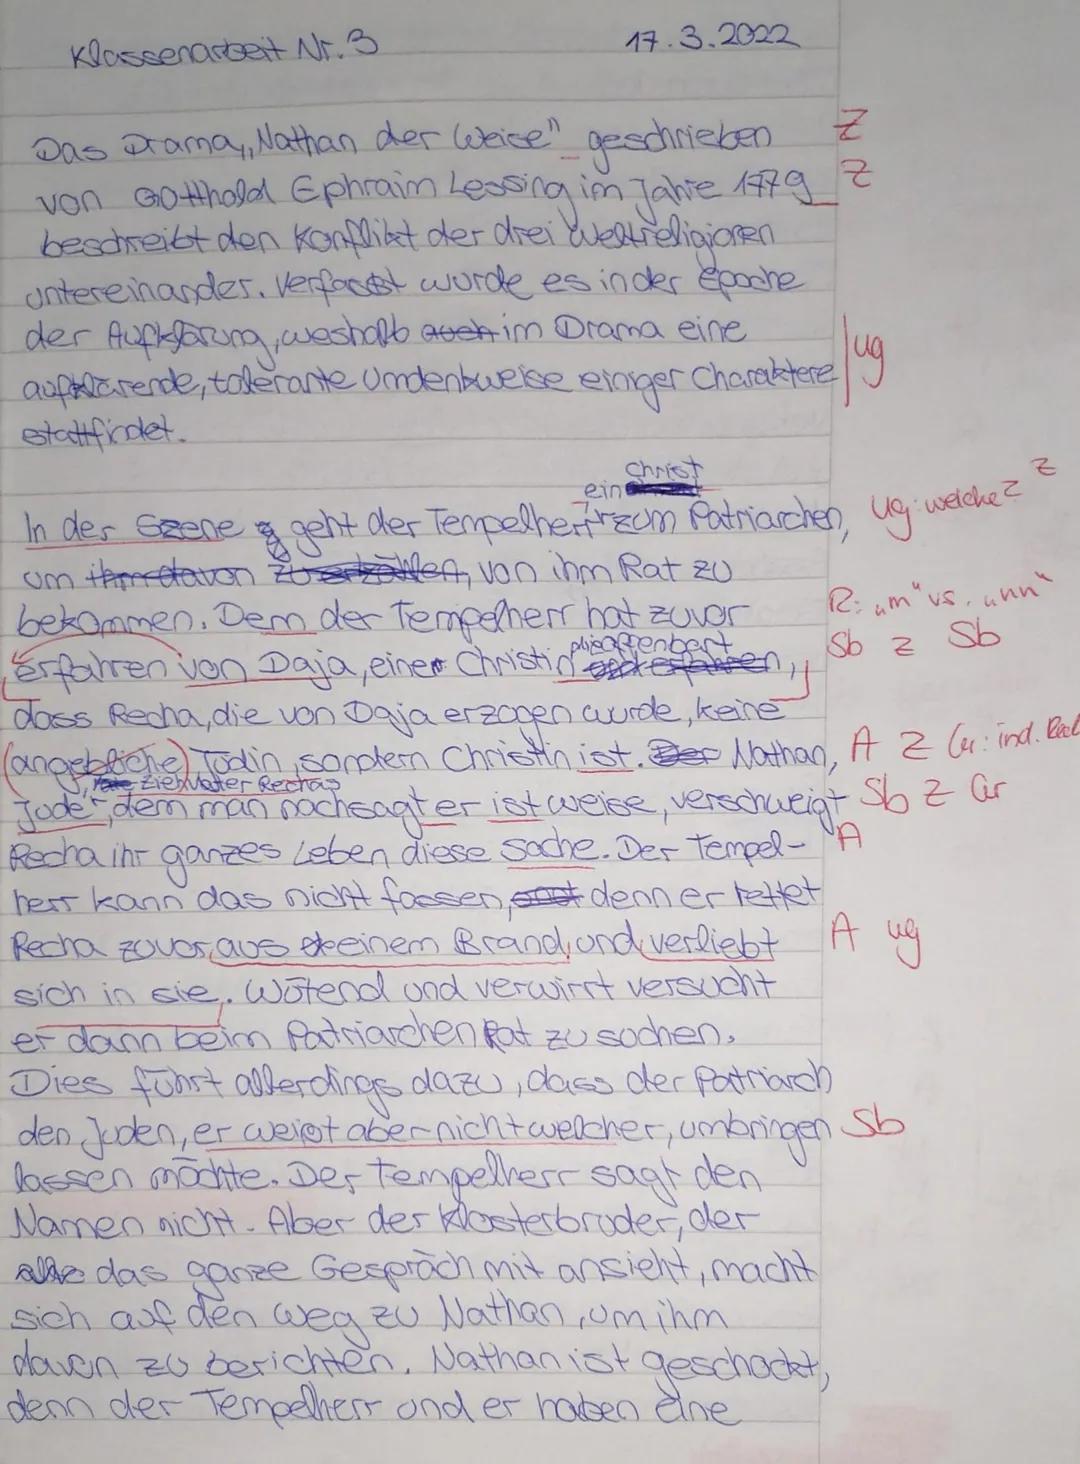 Klassenarbeit Nr. 3 17.3.2022
Das Drama „Nathan der Weise" geschrieben Z
von Gotthold Ephraim Lessing im Jahre 1779 Z
beschreibt den Konflikt der drei Weltreligionen
untereinander. Verfasst wurde es in der Epoche
der Aufklärung, weshalb auch im Drama eine
aufklärende, tolerante Umdenkweise einiger Charaktere | ug
stattfindet.
ein Christ
In der Szene geht der Tempelherr zum Patriarchen, ug: welche? Z
um ihm davon zu erzählen, von ihm Rat zu
bekommen. Denn der Tempelherr hat zuvor R: „m" vs. „nn"
erfahren von Daja, einer Christin, Sb Z Sb
dass Recha, die von Daja erzogen wurde, keine
(angebliche) Jüdin, sondern Christin ist. Der Nathan, A Z Gr: ind. Red
Ziehvater Rechas
Jude, dem man nachsagt er ist weise, verschweigt Sb Z Gr
Recha ihr ganzes Leben diese Sache. Der Tempel- A
herr kann das nicht fassen, denn er rettet
Recha zuvor, aus einem Brand, und verliebt A ug
sich in sie. Wütend und verwirrt versucht
er dann beim Patriarchen Rat zu suchen.
Dies führt allerdings dazu, dass der Patriarch
den Juden, er weist aber nicht welcher, umbringen Sb
lassen möchte. Der Tempelherr sagt den
Namen nicht. Aber der Klosterbruder, der
das ganze Gespräch mit ansieht, macht
sich auf den Weg zu Nathan, um ihm
davon zu berichten. Nathan ist geschockt,
denn der Tempelherr und er haben eine